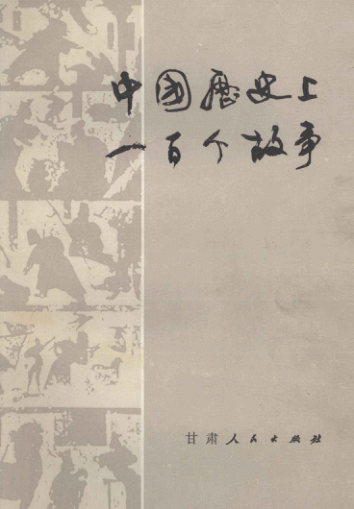 中國歷史上
一百个故事
甘肃人民出版社